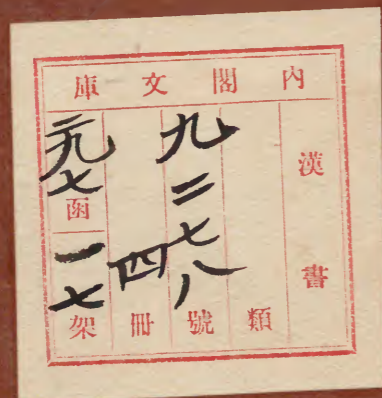 內閣文庫
漢書
類
九二七八號
四冊
二九七函
一七架